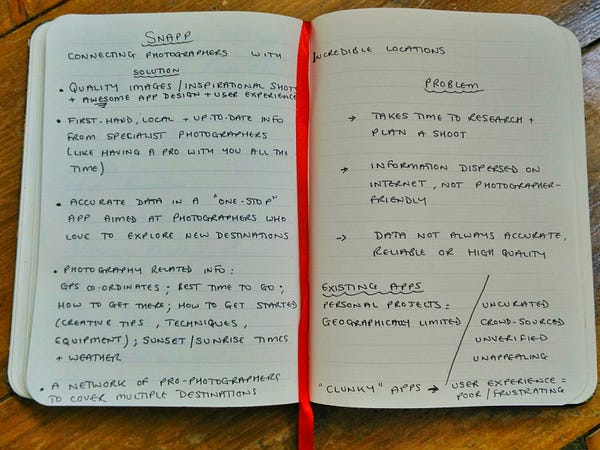 SNAPP
CONNECTING PHOTOGRAPHERS WITH INCREDIBLE LOCATIONS
SOLUTION
• QUALITY IMAGES / INSPIRATIONAL SHOTS
+ AWESOME APP DESIGN + USER EXPERIENCE
• FIRST-HAND, LOCAL + UP-TO-DATE INFO
FROM SPECIALIST PHOTOGRAPHERS
(LIKE HAVING A PRO WITH YOU ALL THE
TIME)
• ACCURATE DATA IN A "ONE-STOP"
APP AIMED AT PHOTOGRAPHERS WHO
LOVE TO EXPLORE NEW DESTINATIONS
• PHOTOGRAPHY RELATED INFO:
GPS CO-ORDINATES; BEST TIME TO GO;
HOW TO GET THERE; HOW TO GET STARTED
(CREATIVE TIPS, TECHNIQUES,
EQUIPMENT); SUNSET/SUNRISE TIMES
+ WEATHER
• A NETWORK OF PRO-PHOTOGRAPHERS
TO COVER MULTIPLE DESTINATIONS
PROBLEM
→ TAKES TIME TO RESEARCH +
PLAN A SHOOT
→ INFORMATION DISPERSED ON
INTERNET, NOT PHOTOGRAPHER-
FRIENDLY
→ DATA NOT ALWAYS ACCURATE,
RELIABLE OR HIGH QUALITY
EXISTING APPS
PERSONAL PROJECTS =
GEOGRAPHICALLY LIMITED
UNCURATED
CROWD-SOURCED
UNVERIFIED
UNAPPEALING
"CLUNKY" APPS → USER EXPERIENCE =
POOR/FRUSTRATING